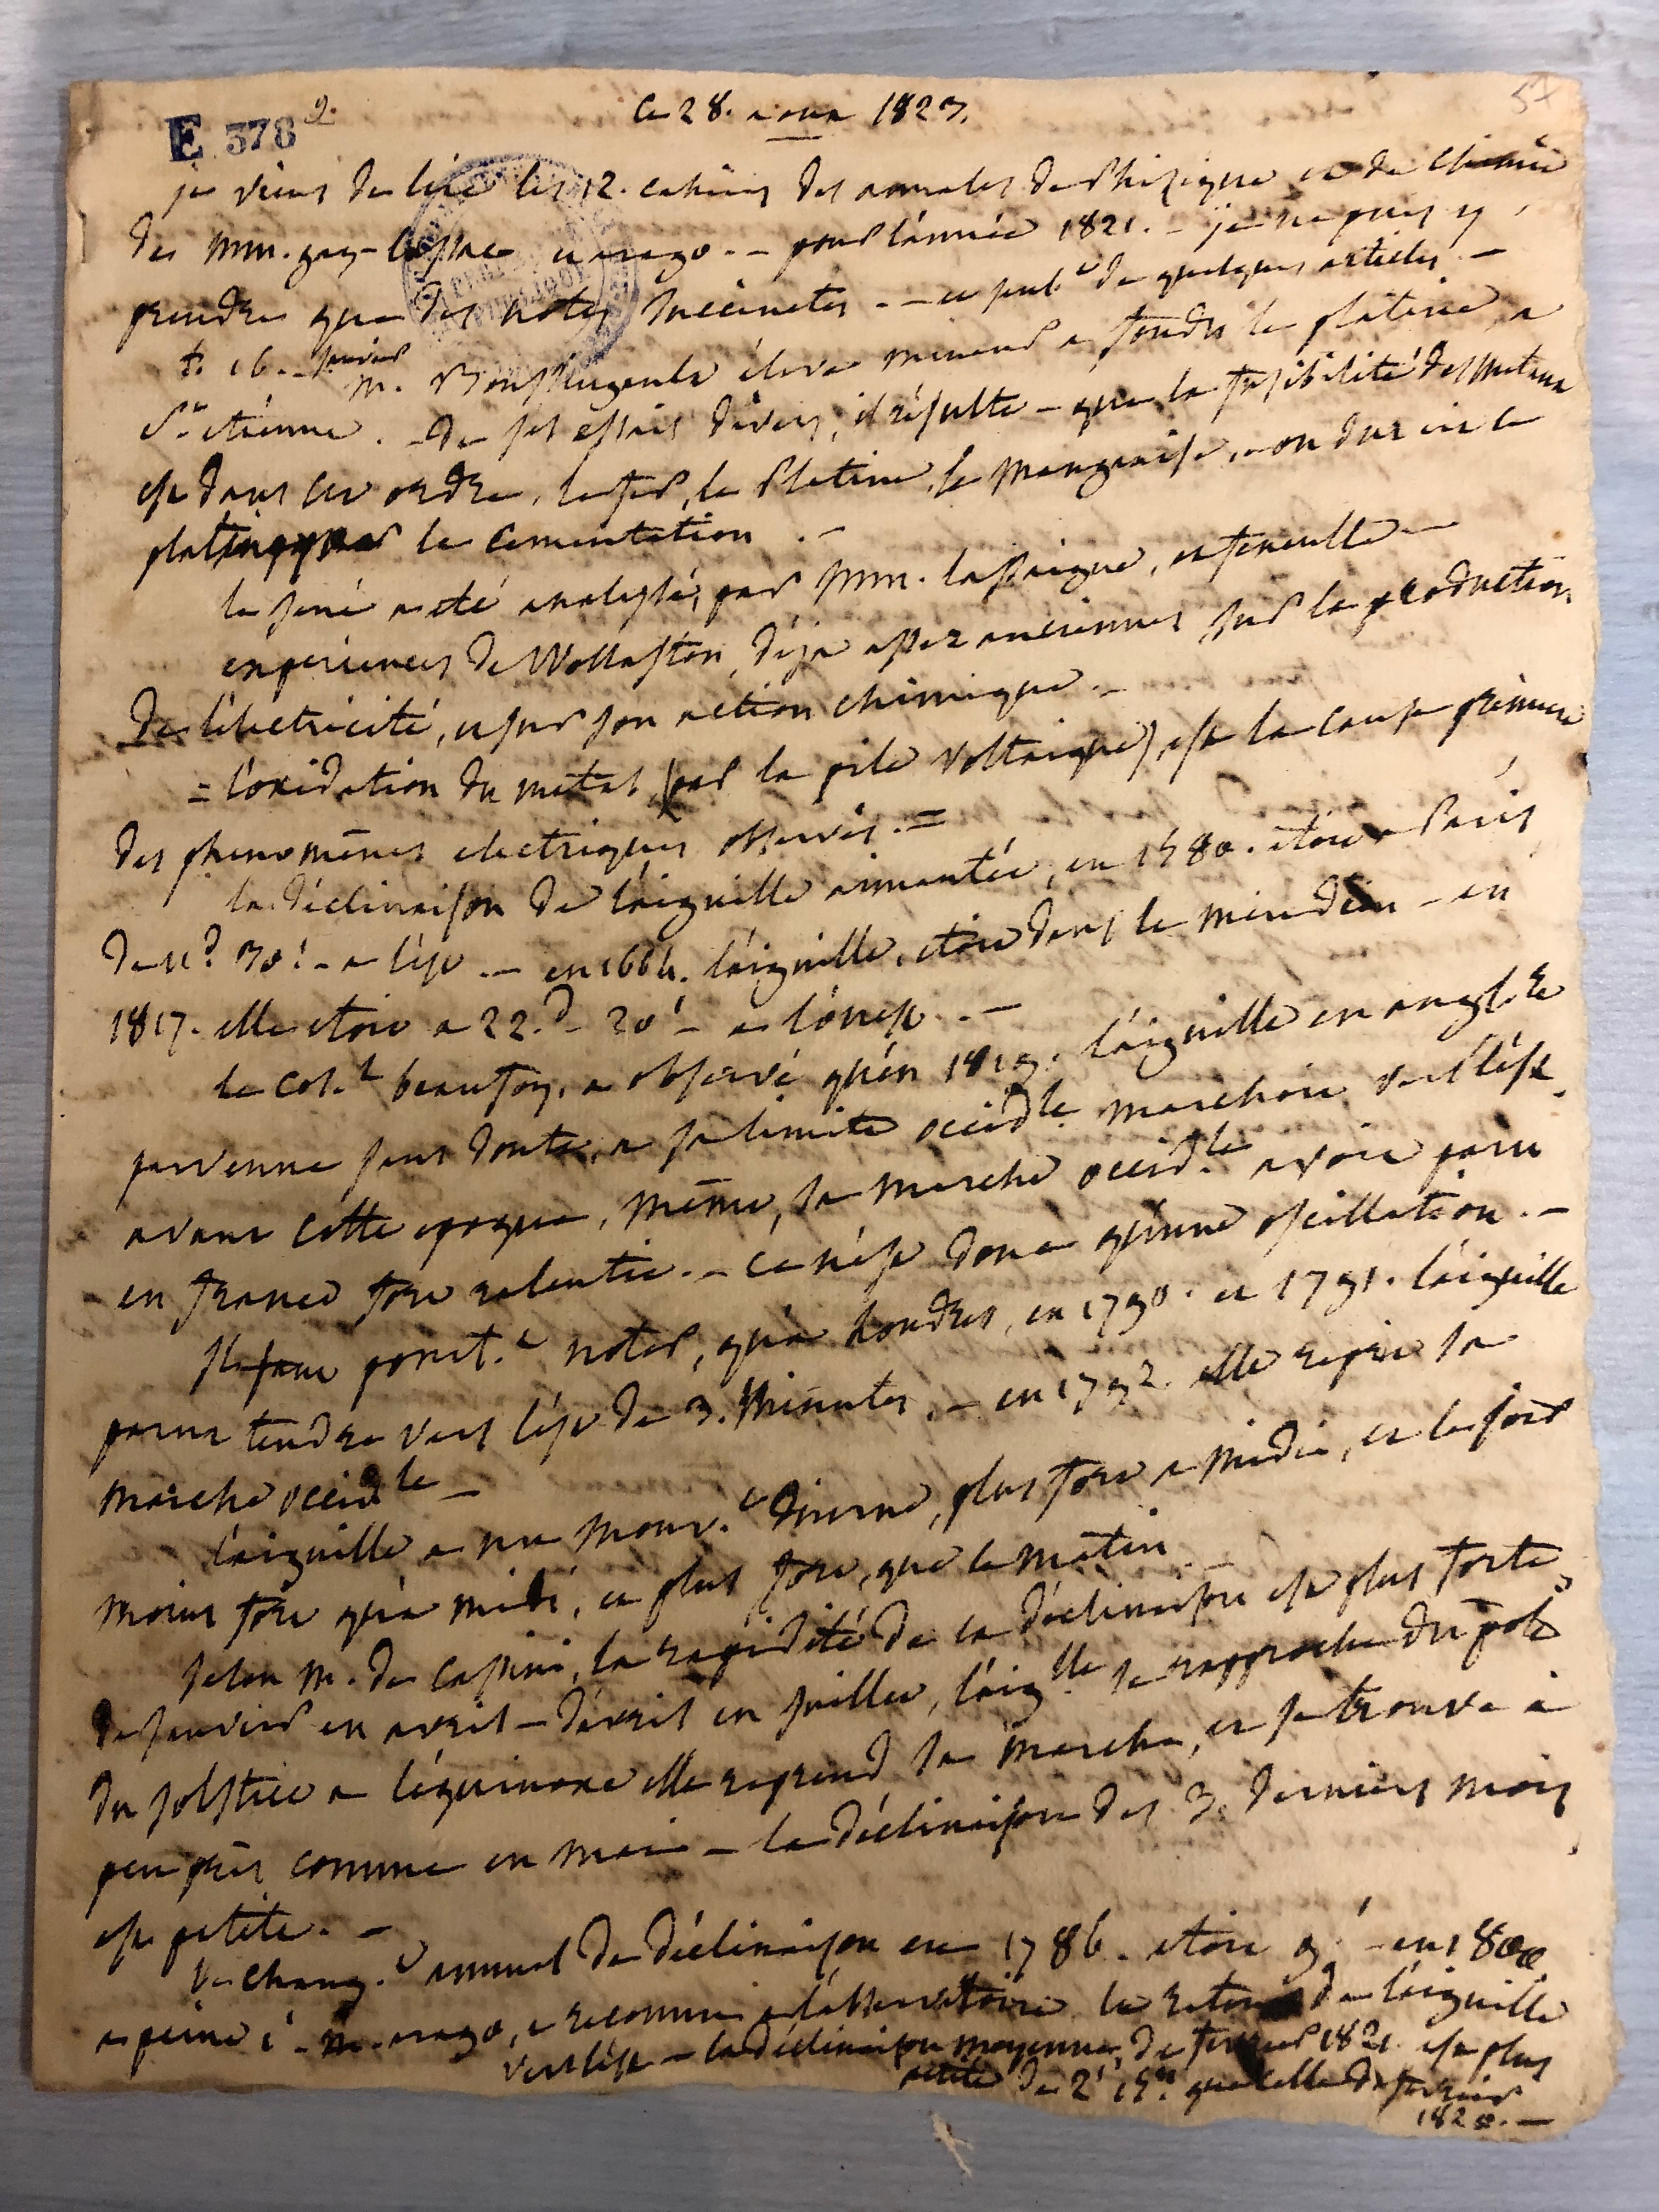 57
E 378
2.
Ce 28. aout 1823.
je viens de lire les 12. cahiers des annales de Phisique et de Chimie
des MM. gay-lussac et arago. - pour l'année 1821. - je ne puis y
prendre que des notes succinctes - et seult de quelques articles -
t. 16. - janvier
M. Boussingault élève mineur a fondu le platine, a
St etienne. - De ses essais divers, il résulte - que la fusibilité des metaux
est dans cet ordre, le fer, le Platine, le manganèse, on durcit le
platine par la cementation. -
le séné a été analysé, par MM. lassaigne, et feneulle -
expériences de Wollaston, déja assez anciennes, sur la production
De l'électricité, et sur son action chimique. -
= l'oxidation du metal, (par la pile Voltaique) est la cause première
des phenomènes electriques observés. =
la déclinaison de l'aiguille aimantée, en 1580. etoit a Paris,
de 11.d 30' - a l'est. - en 1664. l'aiguille, etoit dans le meridien - en
1817. elle etoit a 22.d - 20' - a l'ouest. -
le col.l beaufoy, a observé qu'en 1819. l'aiguille en anglre
parvenue sans doute, a sa limite occidle marchoit vers l'est.
avant cette epoque, même, sa marche occidle avoit paru
en france fort ralentie. - Ce n'est donc qu'une oscillation. -
Il faut pourt.t noter, qu'a Londres, en 1790. et 1791. l'aiguille
parut tendre vers l'est de 3. Minutes. - en 1792. elle reprit sa
marche occidle -
l'aiguille a un mouv.t diurne, plus fort a midi, et le soir
moins fort qu'a midi, et plus fort, que le matin. -
selon M. de Cassini, la rapidité de la déclinaison est plus forte,
de janvier en avril - d'avril en juillet, l'aiglle se rapproche du pole
du solstice a l'équinoxe elle reprend sa marche, et se trouve à
peu près comme en mai - la déclinaison des 3. derniers mois
est petite. -
le chang.t annuel de déclinaison en 1786. etoit 9' - en 1800
a peine 1' - M. arago, a reconnu a l'observatoire le retour de l'aiguille
vers l'est - la déclinaison moyenne, de fevrier 1821 est plus
petite de 2' 15" que celle de fevrier
1820. -